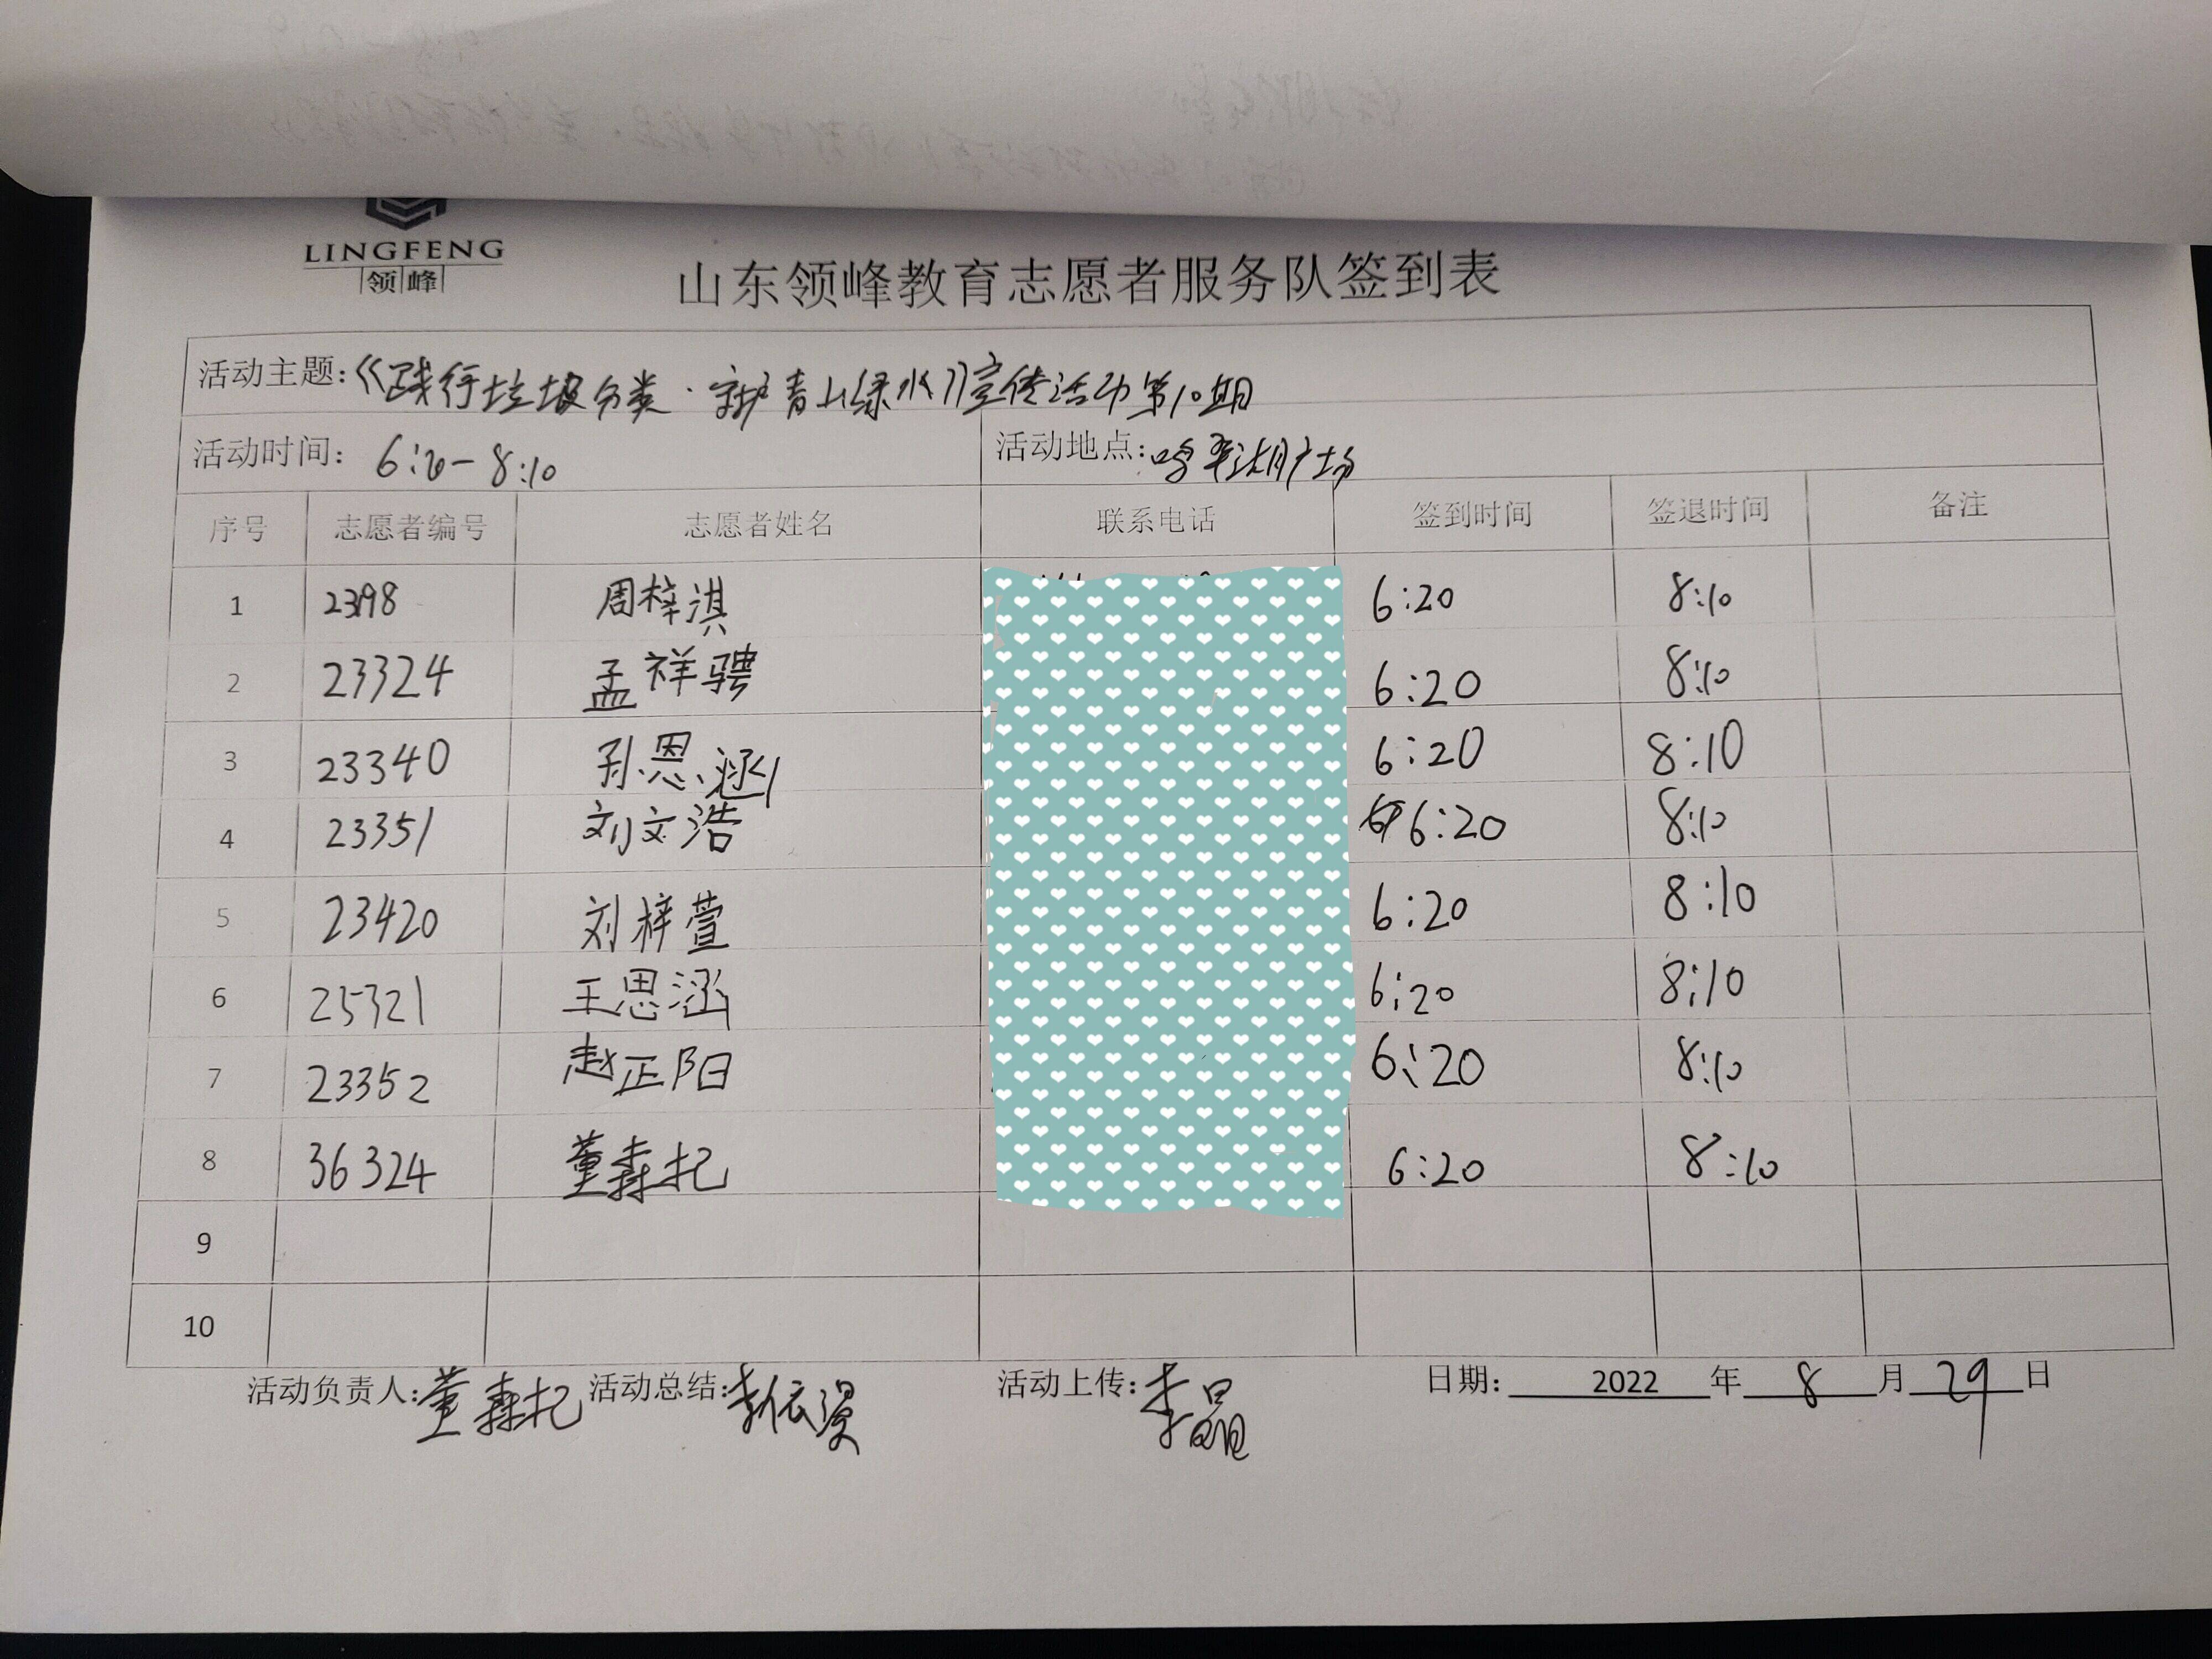 LINGFENG
领峰
山东领峰教育志愿者服务队签到表
活动主题:《践行垃圾分类·守护青山绿水》宣传活动第10期
活动时间: 6:20-8:10 活动地点:
序号 志愿者编号 志愿者姓名 联系电话 签到时间 签退时间 备注
1 周梓淇 6:20 8:10
2 23324 孟祥骋 6:20 8:10
3 23340 孙恩涵 6:20 8:10
4 23351 刘文浩 6:20 8:10
5 23420 刘梓萱 6:20 8:10
6 25321 王思涵 6:20 8:10
7 23352 赵正阳 6:20 8:10
8 36324 董森圯 6:20 8:10
9
10
活动负责人:董森圯 活动总结: 活动上传:李晶 日期: 2022 年 8 月 29 日